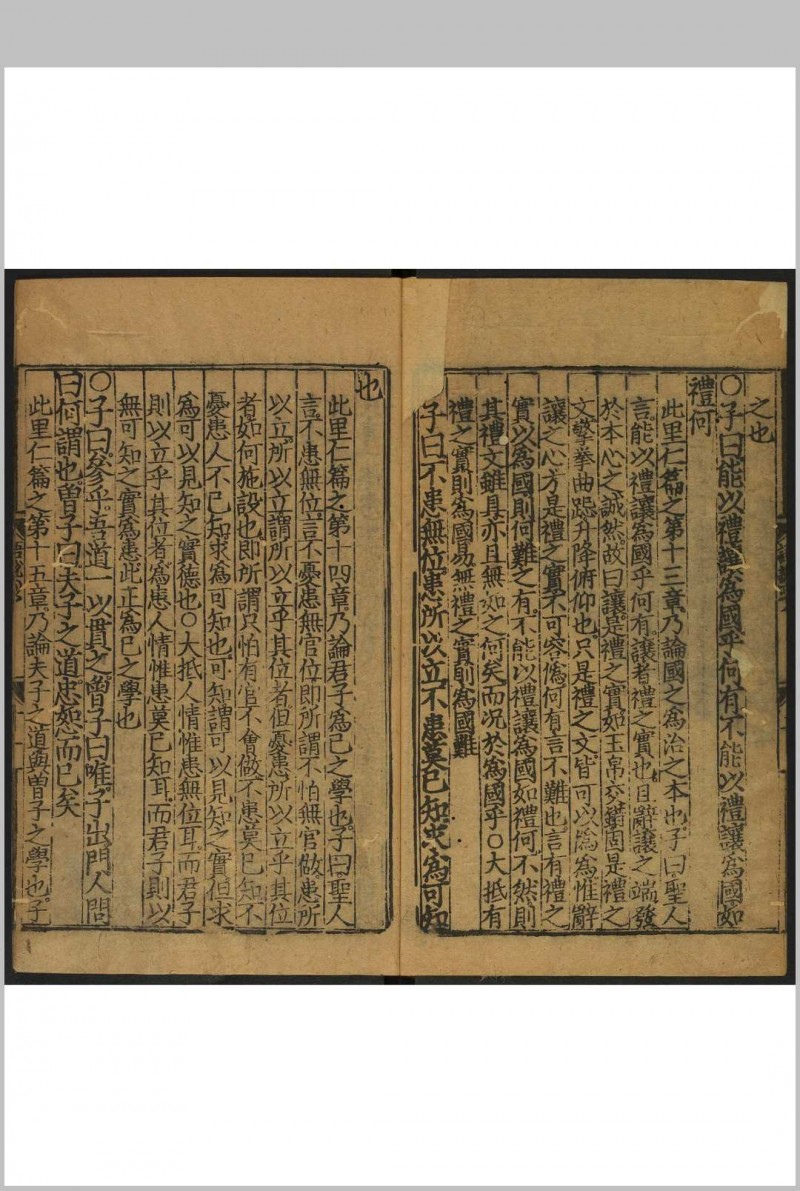 之也
○子曰能以禮讓爲國乎何有不能以禮讓爲國如
禮何
此里仁篇之第十三章乃論國之爲治之本也子曰聖人
言能以禮讓爲國乎何有讓者禮之實也且辭讓之端發
於本心之誠然故曰讓是禮之實如玉帛交錯固是禮之
文擎拳曲跽升降俯仰也只是禮之文皆可以僞爲惟辭
讓之心方是禮之實不可容僞何有言不難也言有禮之
實以爲國則何難之有不能以禮讓爲國如禮何不然則
其禮文雖具亦且無如之何矣而况於爲國乎○大抵有
禮之實則爲國易無禮之實則爲國難
子曰不患無位患所以立不患莫己知求爲可知
也
此里仁篇之第十四章乃論君子爲己之學也子曰聖人
言不患無位言不憂患無官位即所謂不怕無官做患所
以立所以立謂所以立乎其位者但憂患所以立乎其位
者如何施設也即所謂只怕有官不會做不患莫己知不
憂患人不己知求爲可知也可知謂可以見知之實但求
爲可以見知之實德也○大抵人情惟患無位耳而君子
則以立乎其位者爲患人情惟患莫己知耳而君子則以
無可知之實爲患此正爲己之學也
○子曰參乎吾道一以貫之曾子曰唯子出門人問
曰何謂也曾子曰夫子之道忠恕而已矣
此里仁篇之第十五章乃論夫子之道與曾子之學也子